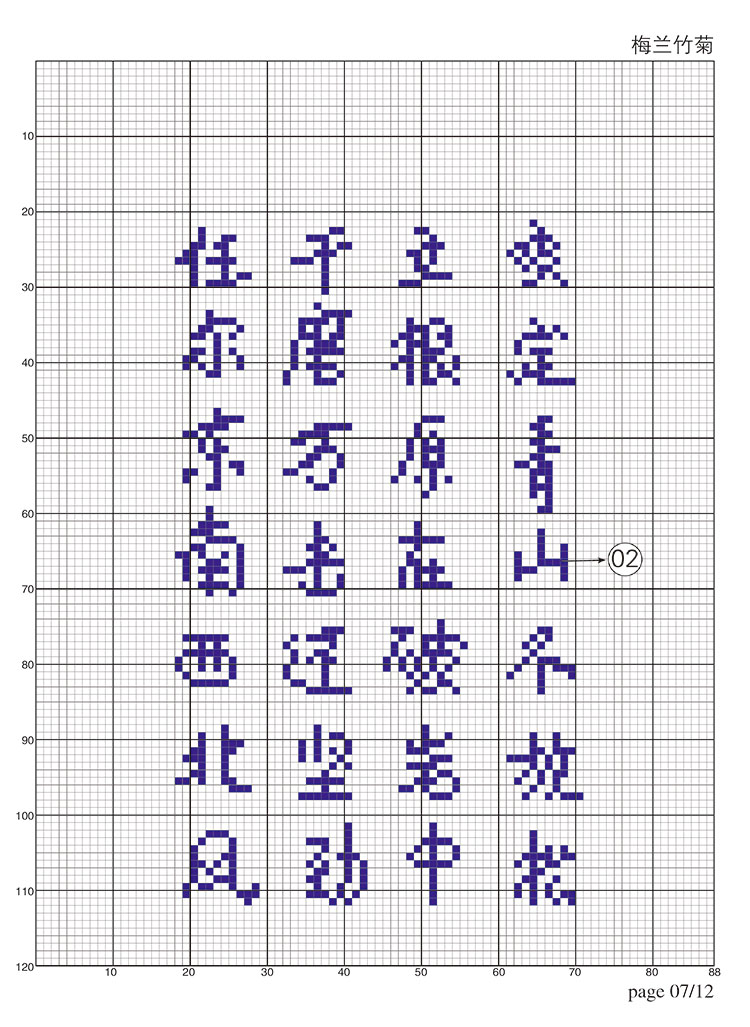 梅兰竹菊
10
20
30
40
50
60
70
80
90
100
110
120
咬定青山不放松
立根原在破岩中
千磨万击还坚劲
任尔东南西北风
02
10 20 30 40 50 60 70 80 88
page 07/12